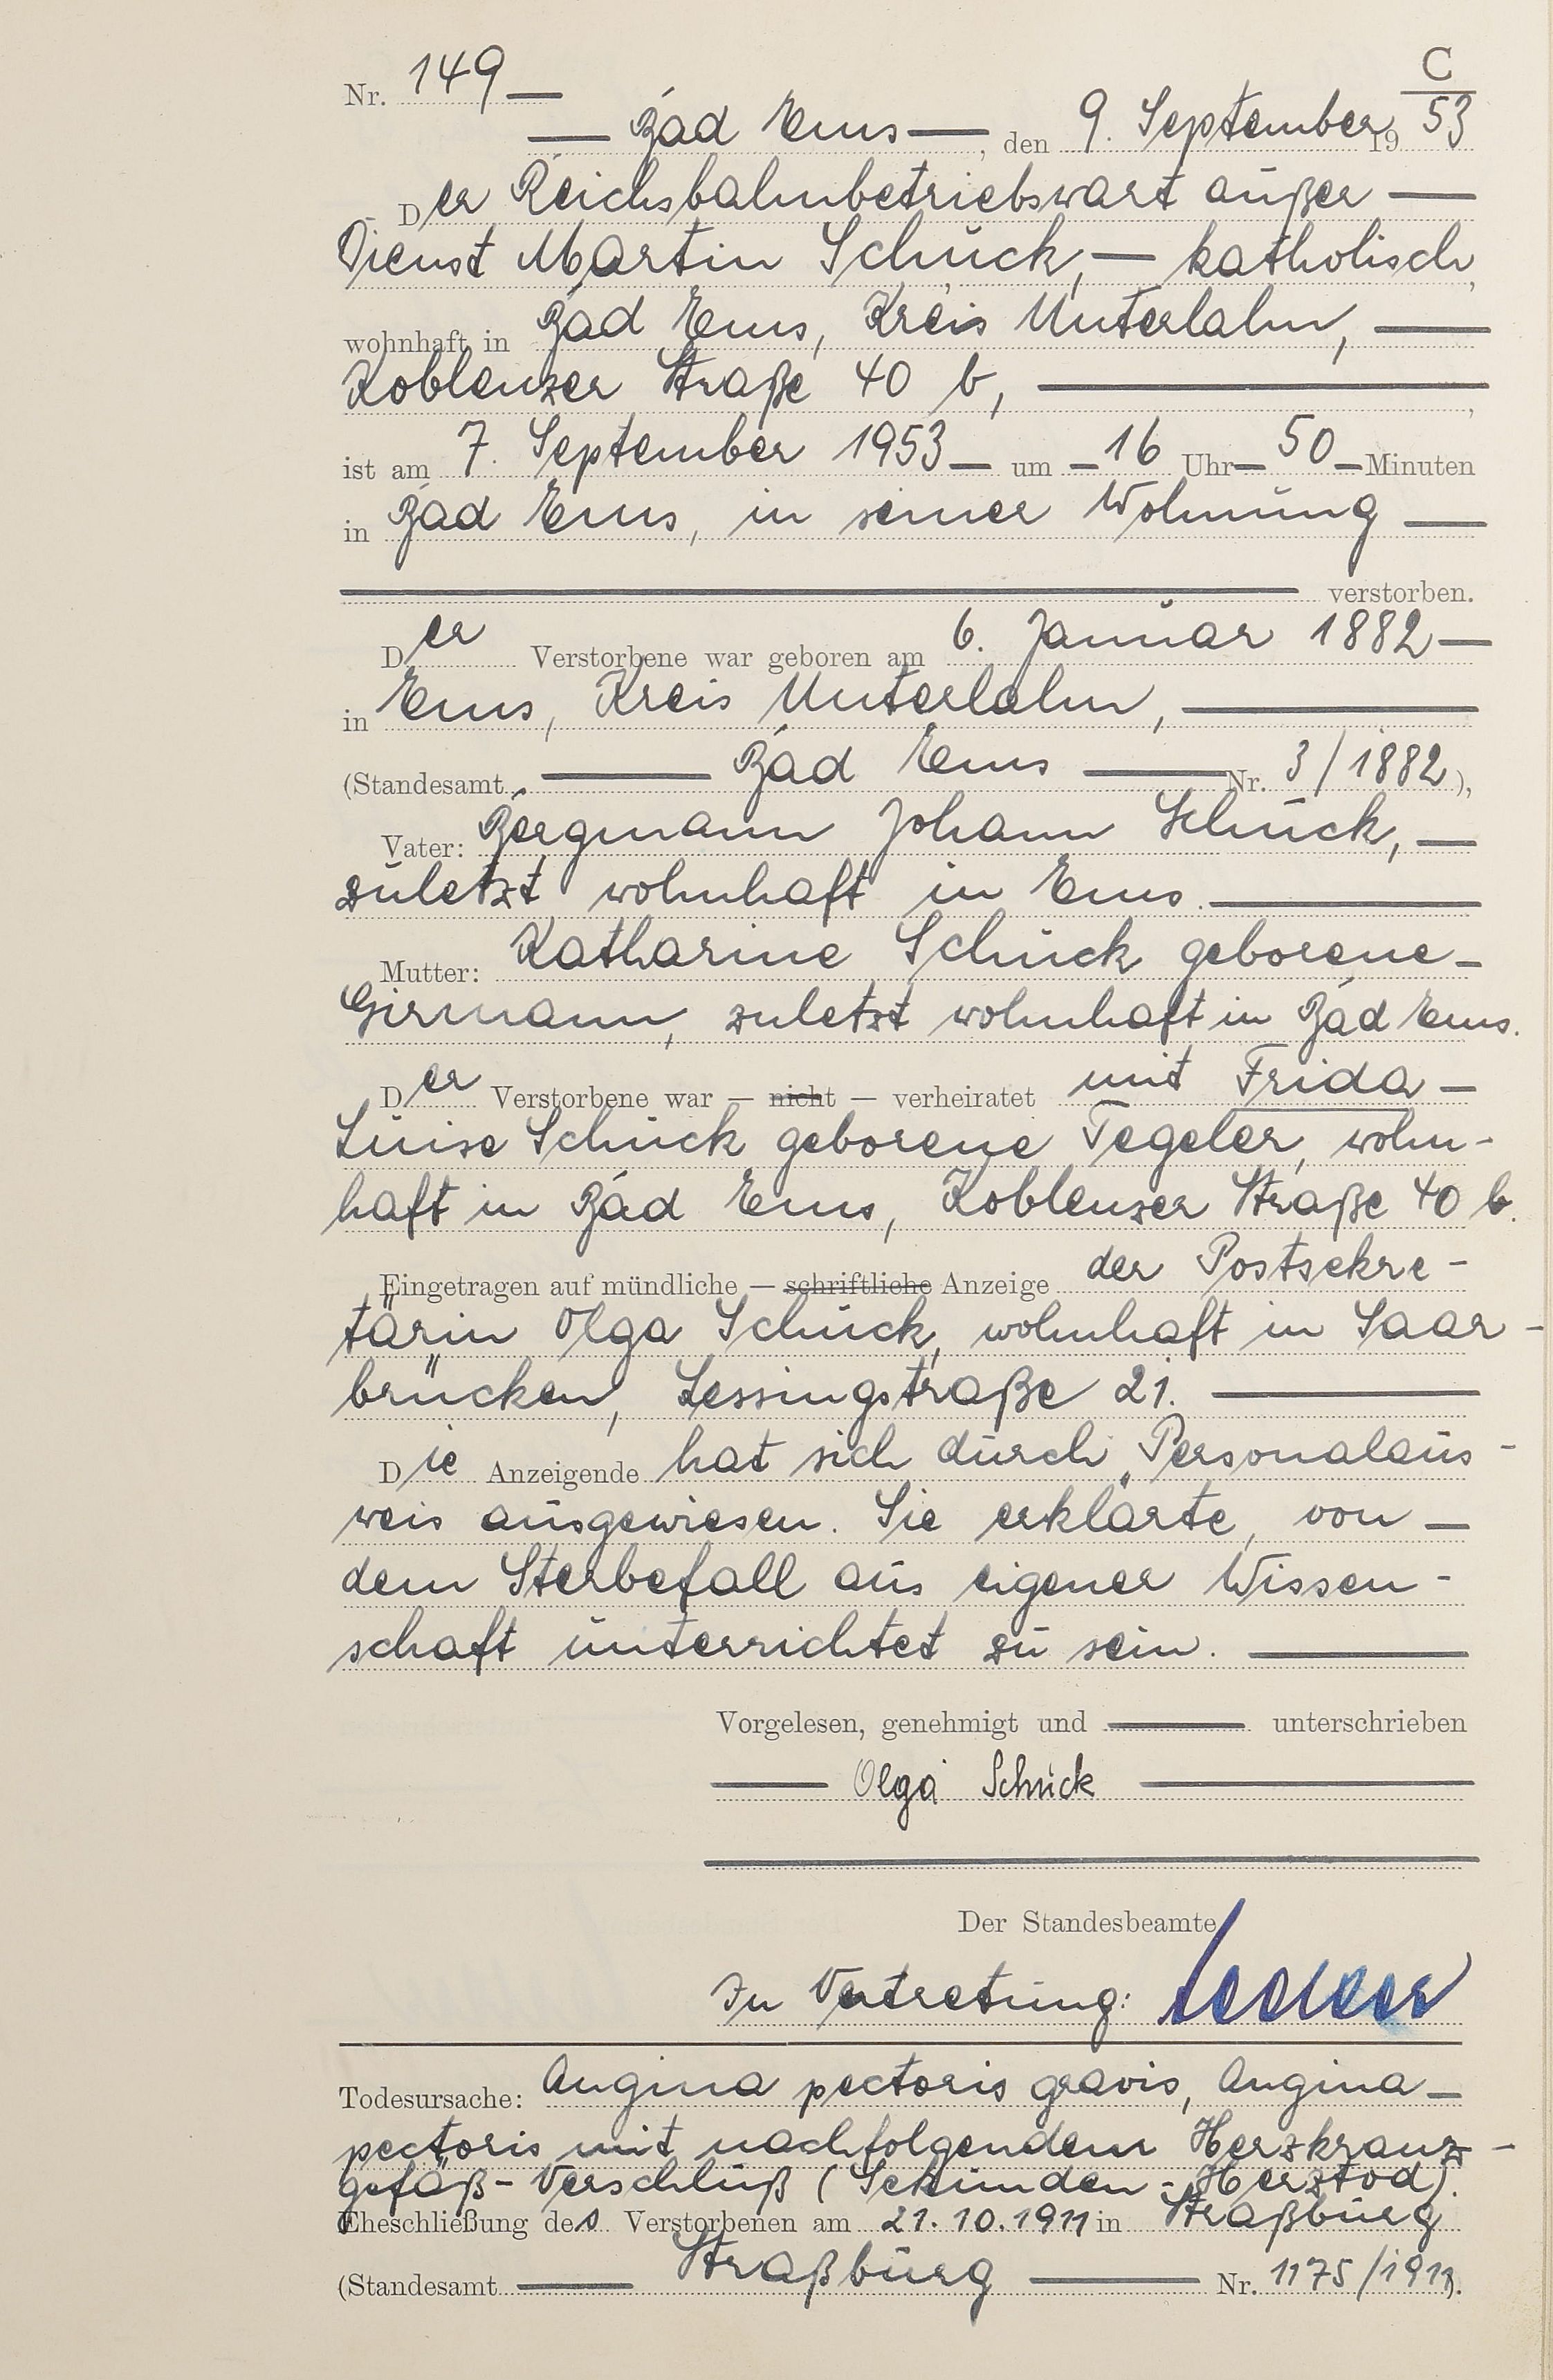 C
Nr. 149
Bad Ems, den 9. September 1953
Der Reichsbahnbetriebswart außer
Dienst Martin Schuck, katholisch,
wohnhaft in Bad Ems, Kreis Unterlahn,
Koblenzer Straße 40 b,
ist am 7. September 1953 um 16 Uhr 50 Minuten
in Bad Ems, in seiner Wohnung
verstorben.
Der Verstorbene war geboren am 6. Januar 1882
in Ems, Kreis Unterlahn,
(Standesamt Bad Ems Nr. 3/1882),
Vater: Bergmann Johann Schuck,
zuletzt wohnhaft in Ems.
Mutter: Katharine Schuck geborene
Girmann, zuletzt wohnhaft in Bad Ems.
Der Verstorbene war — nicht — verheiratet mit Frida
Luise Schuck geborene Tegeler, wohn-
haft in Bad Ems, Koblenzer Straße 40 b.
Eingetragen auf mündliche — schriftliche Anzeige der Postsekre-
tärin Olga Schuck, wohnhaft in Saar-
brücken, Lessingstraße 21.
Die Anzeigende hat sich durch Personalaus-
weis ausgewiesen. Sie erklärte, von
dem Sterbefall aus eigener Wissen-
schaft unterrichtet zu sein.
Vorgelesen, genehmigt und unterschrieben
Olga Schuck
Der Standesbeamte
In Vertretung:
Todesursache: Angina pectoris gravis, Angina
pectoris mit nachfolgendem Herzkranz-
gefäß-Verschluß (Sekunden-Herztod).
Eheschließung des Verstorbenen am 21.10.1911 in Straßburg
(Standesamt Straßburg Nr. 1175/1911).